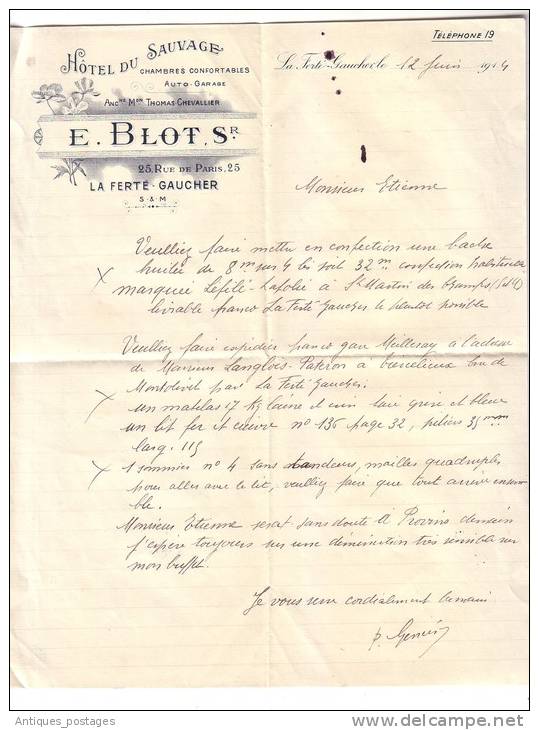 TÉLÉPHONE 19
HÔTEL DU SAUVAGE
CHAMBRES CONFORTABLES
AUTO-GARAGE
ANCNE MON THOMAS CHEVALLIER
E. BLOT, SR
25, RUE DE PARIS, 25
LA FERTÉ-GAUCHER
S & M
La Ferté-Gaucher, le 12 Juin 1914
Monsieur Etienne
Veuillez faire mettre en confection une bache
huilée de 8m sur 4 soit 32m confection
marquée Lefilé-Lafolie à St Martin des Champs
livrable franco La Ferté Gaucher le plutot possible
Veuillez faire expédier franco gare Meilleray a l'adresse
de Monsieur Langlois-Pateron à
Montolivet par La Ferté Gaucher.
un matelas 17 Kg laine et crin grise et bleue
un lit fer et cuivre no 136 page 32, piliers 35mm
larg. 115
1 sommier no 4 sans mailles quadruples
pour aller avec le lit, veuillez faire que tout arrive ensem
ble.
Monsieur Etienne serat sans doute à Provins demain
j'espère toujours sur une diminution très sensible sur
mon buffet.
Je vous serre cordialement la main